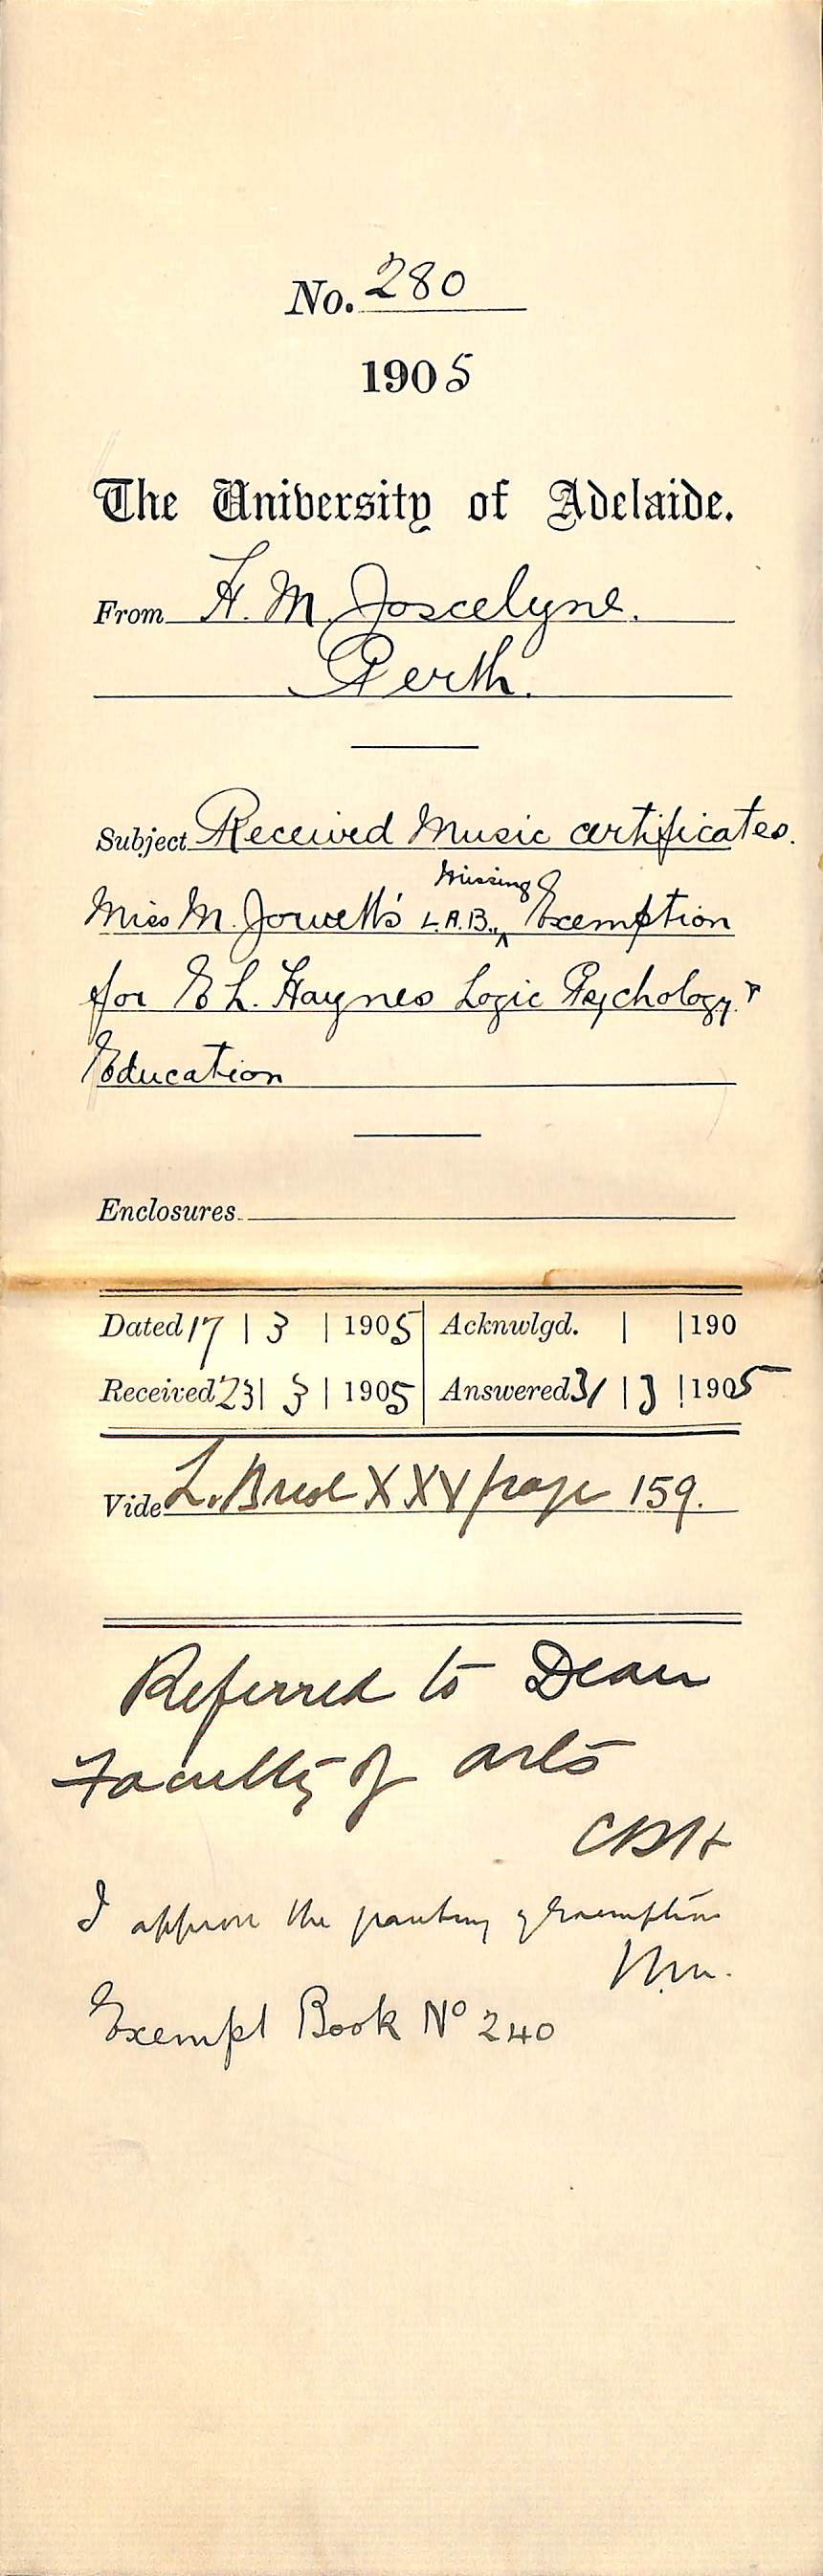 No. 280
1905
The University of Adelaide.
From H. M. Joscelyne.
Perth.
Subject Received Music certificates.
Missing
Miss M. Jowett's L.A.B., Exemption
for E L. Haynes Logic Psychology &
Education
Enclosures
Dated 17 | 3 | 1905 Acknwlgd. | | 190
Received 23 | 3 | 1905 Answered 31 | 3 | 1905
Vide L. Book XXV page 159.
Referred to Dean
Faculty of Arts
I approve the granting of exemption
Exempt Book No 240